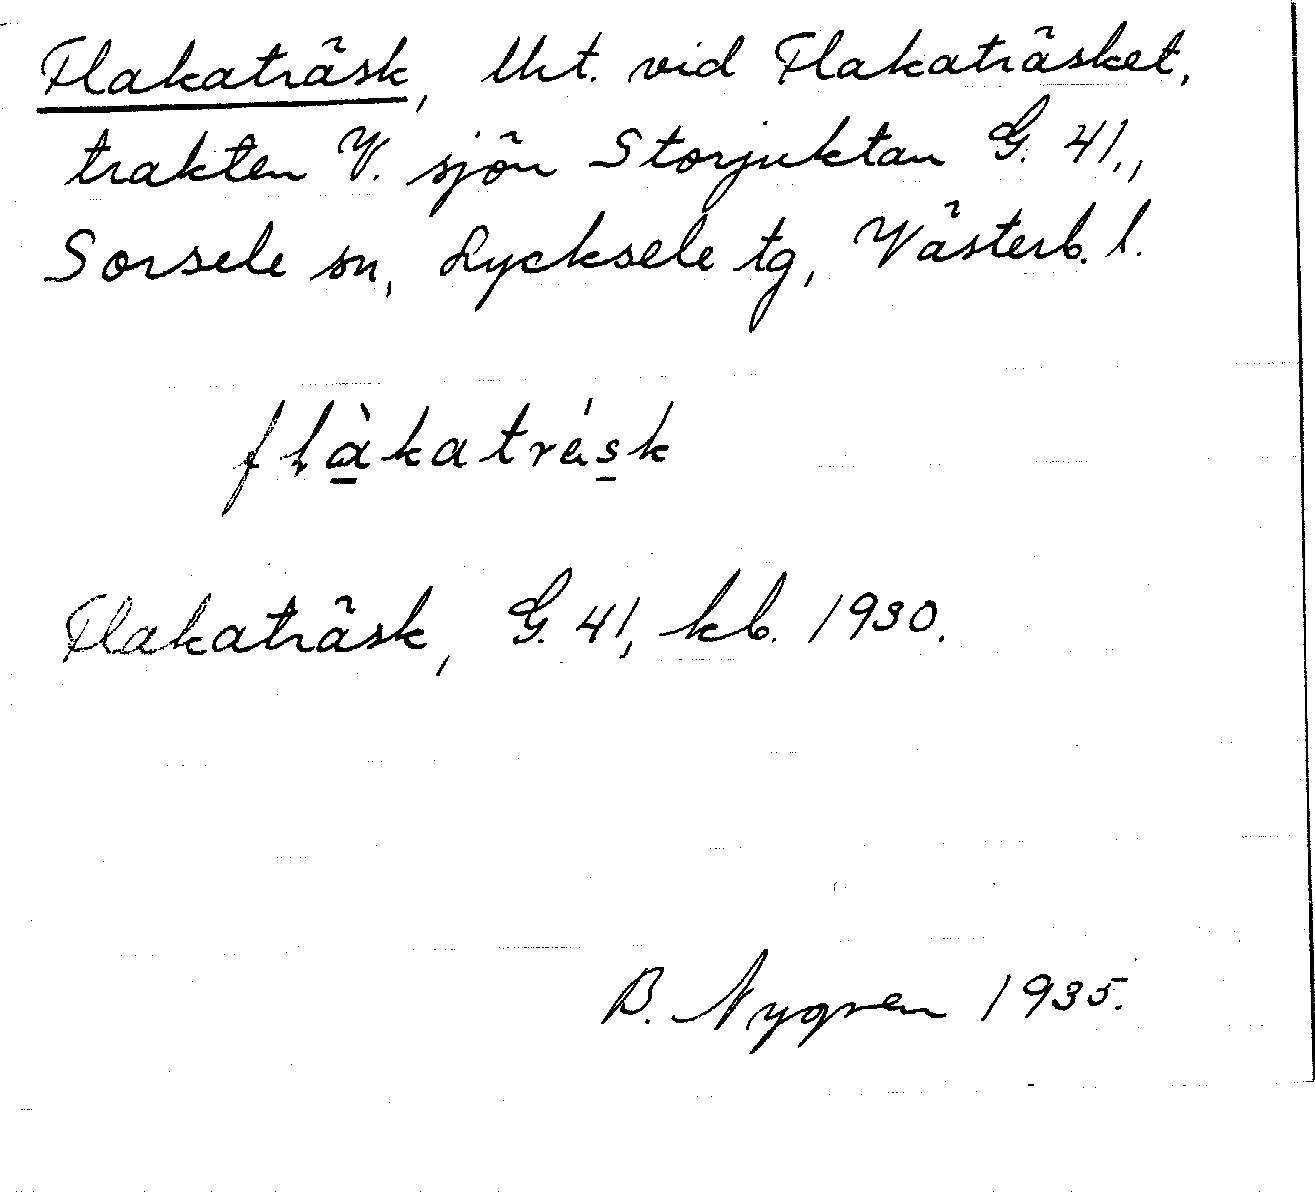 Flakaträsk, Utr. vid Flakaträsket,
trakten V. sjön Storjuktan G. 41.,
Sorsele sn, Lycksele tg, Västerb. l.
flàkatrésk
Flakaträsk, G. 41, kb. 1930.
B. Nygren 1935.